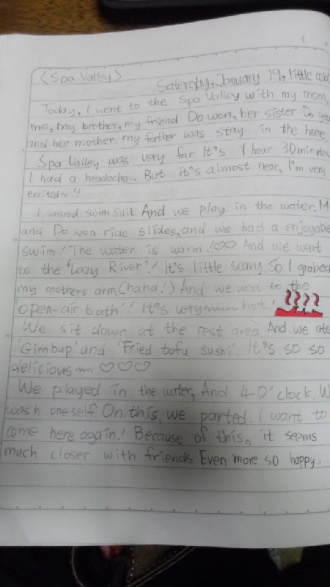 1
<Spa Valley>
Saterday, January 19, little cold
Today, I went to the Spa Valley with my mom,
me, my brother, my friend Do won, her sister Do
and her mother my farther was stay in the home
Spa Valley was very far It's 1 hour 30 minutes
I had a headache.. But it's almost near, I'm very
excited~!!
I weared swim suit And we play in the water, M
and Do won ride slides, and we had a enjoyable
swim! The water is warm! And we went
to the 'Lazy River'! It's little scary, So I grabed
my mothers arm (haha!) And we went to the
open-air bath!! It's very hot!
We sit down at the rest area And we ate
'Gimbup' and 'Fried tofu sushi'! It's so so
delicious ~~ ♡♡♡
We played in the water, And 4 O'clock, W
wash oneself On this, we parted. I want to
come here again! Because of this, it seems
much closer with friends Even more so happy.